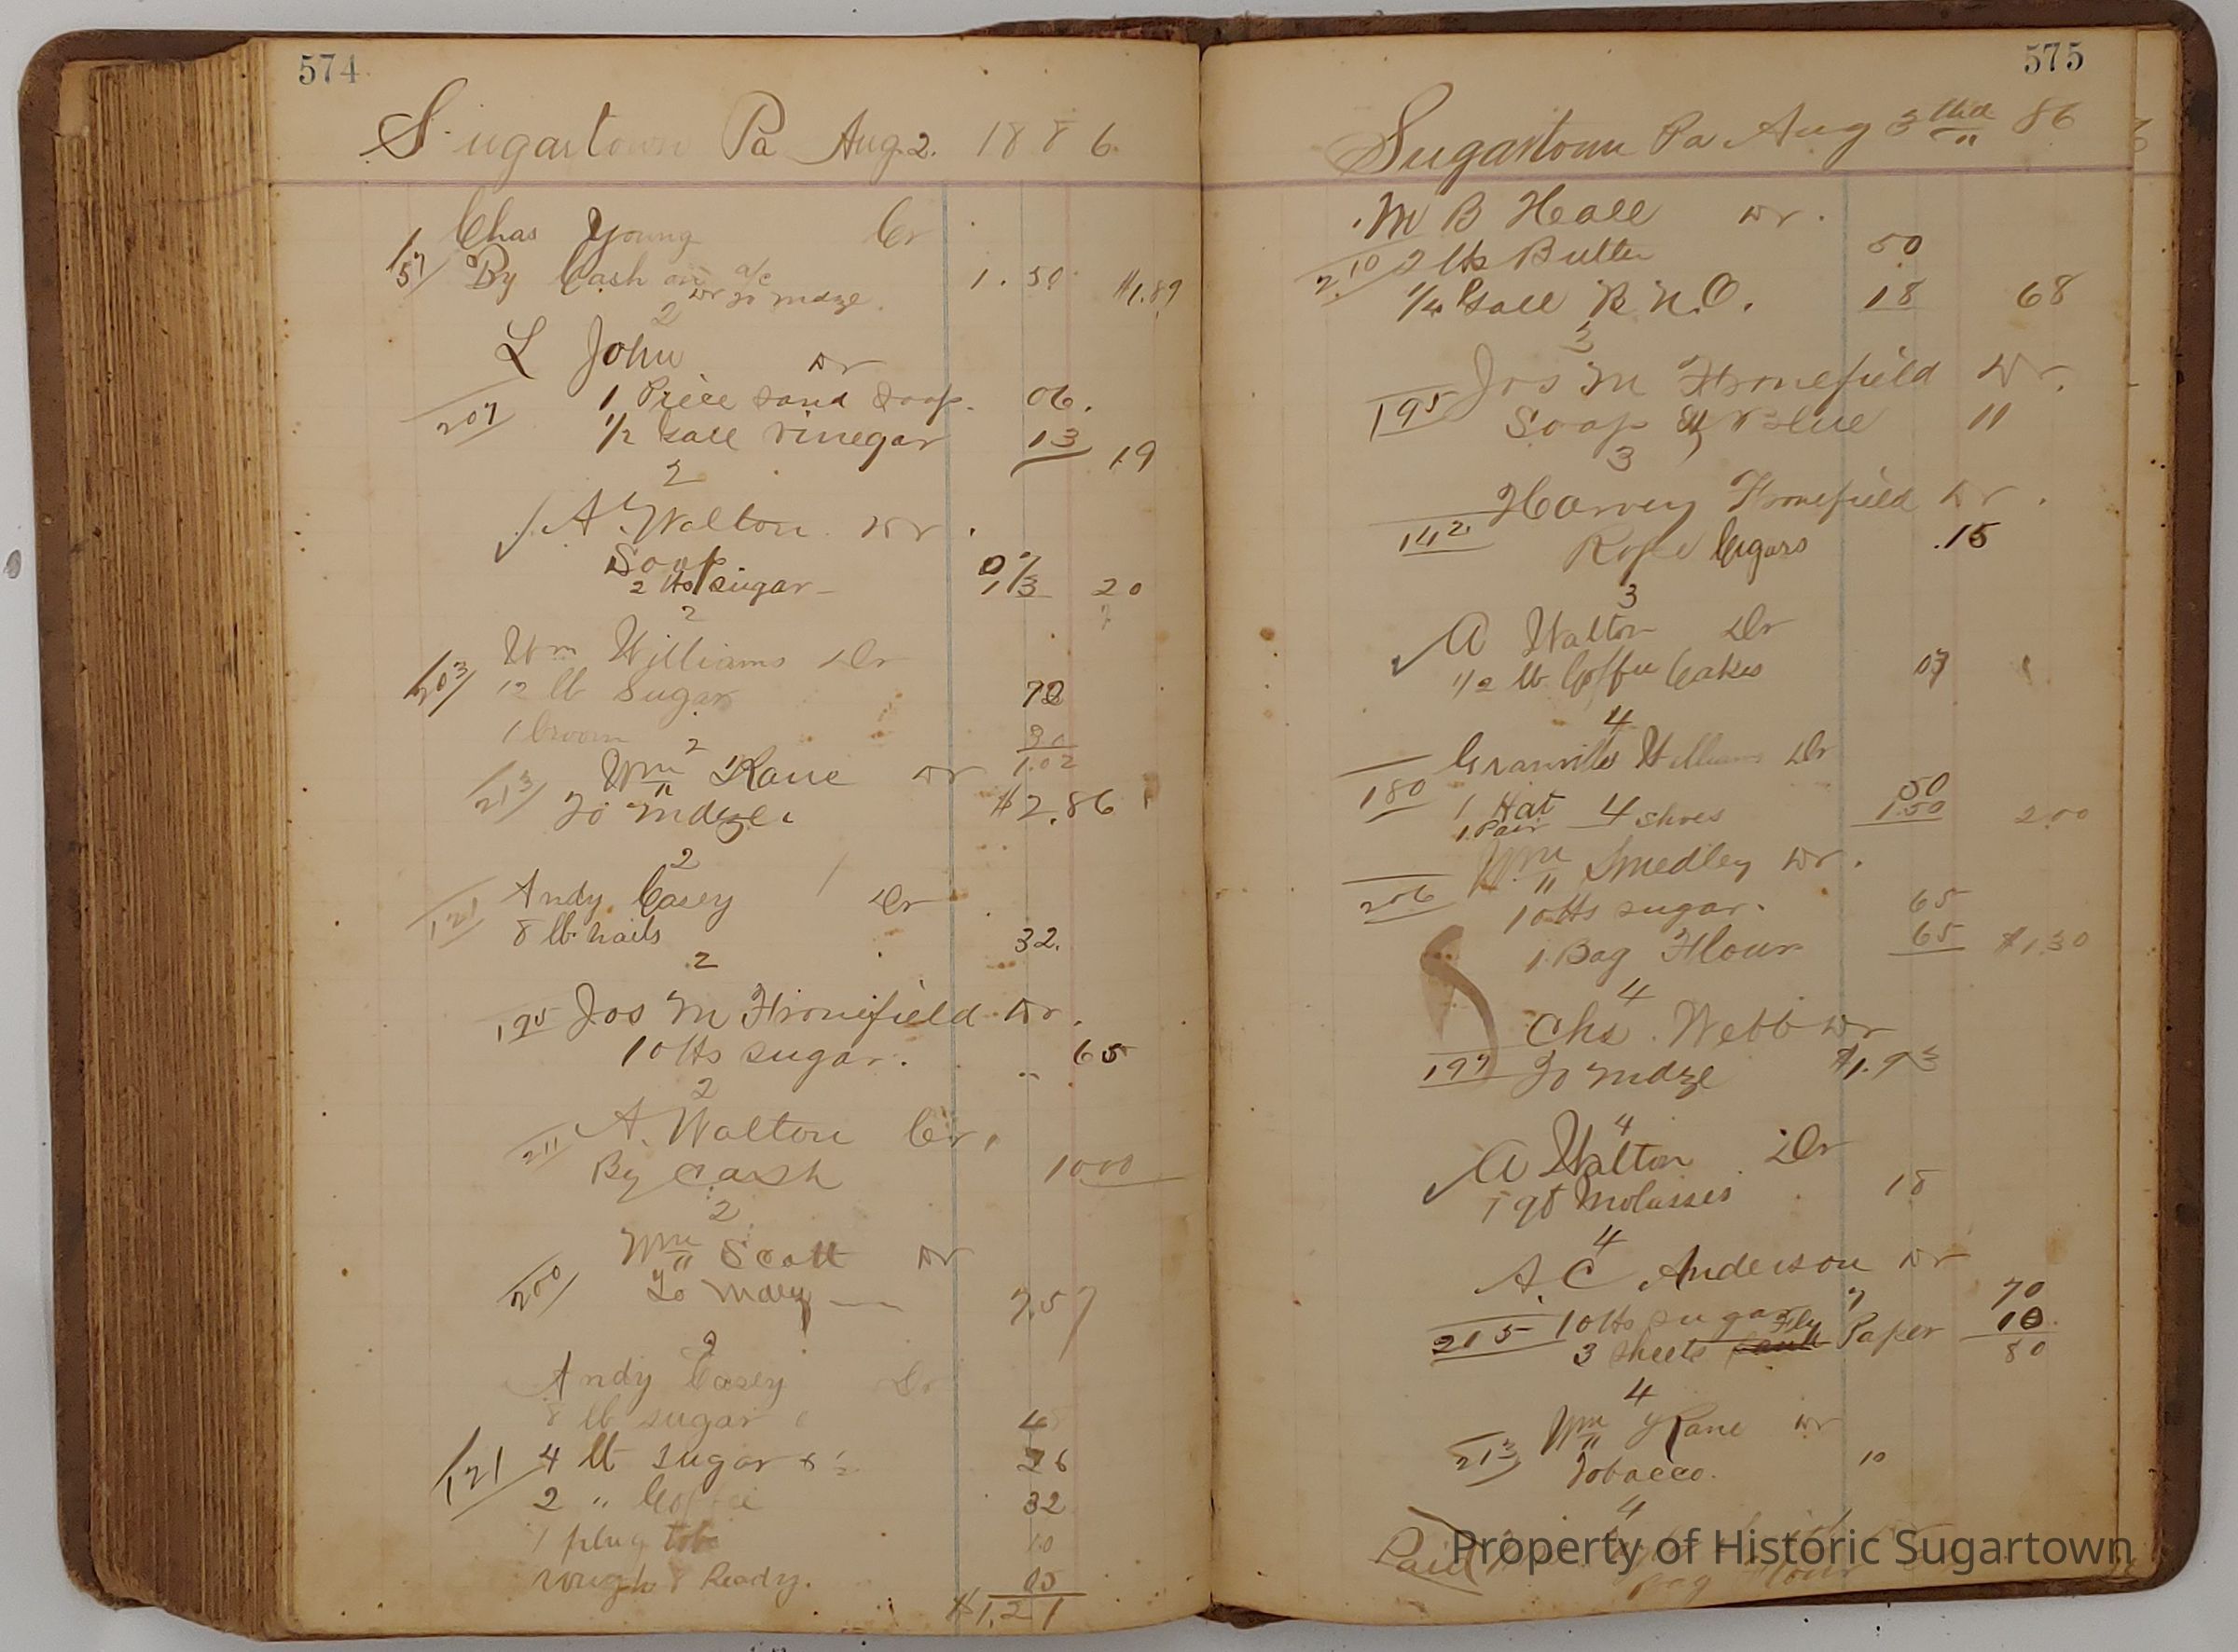 574
Sugartown Pa Aug 2. 1886
Chas Young Cr
157 By Cash on a/c 1.50 $1.89
Dr To mdze.
2
L John Dr
207 1 Piece sand soap. 06.
1/2 Gall vinegar 13 19
2
A Walton Dr.
Soap 07
2 lbs sugar 13 20
2
Wm Williams Dr
203 12 lb Sugar 72
1 broom 30
1.02
2
Wm Kane Dr
213 To mdze. $2.86
2
Andy Casey Dr
121 8 lb nails 32.
2
195 Jos M Fronefield Dr.
10 lbs sugar. 65
2
A. Walton Cr.
211 By Cash 1000
2
Wm Scott Dr
200 To 7.57
2
Andy Casey Dr
8 lb sugar
121 4 lb sugar 26
2 " Coffee 32
1 plug tob 10
rough & Ready. 05
$1,21
575
Sugartown Pa Aug 3 86
M B Heall Dr.
210 2 lbs Butter 50
1/4 Gall 18 68
3
Jos M Fronefield Dr.
195 Soap & Blue 11
3
Harvey Fronefield Dr.
142 Rope Cigars .15
3
A Walton Dr
1/2 lb Coffee Cakes 07
4
Granville Williams Dr
180 1 Hat 50
1 Pair shoes 1.50 2.00
4
Wm Smedley Dr.
206 10 lbs sugar. 65
1 Bag Flour 65 $1.30
4
Chs. Webb Dr
197 To mdze $1.93
4
A Walton Dr
1 qt Molasses 18
4
A. C. Anderson Dr
215 10 lbs sugar 7 70
3 sheets Fly Paper 10
80
4
Wm Kane Dr
213 Tobacco. 10
4
Paid
Bag Flour
Property of Historic Sugartown